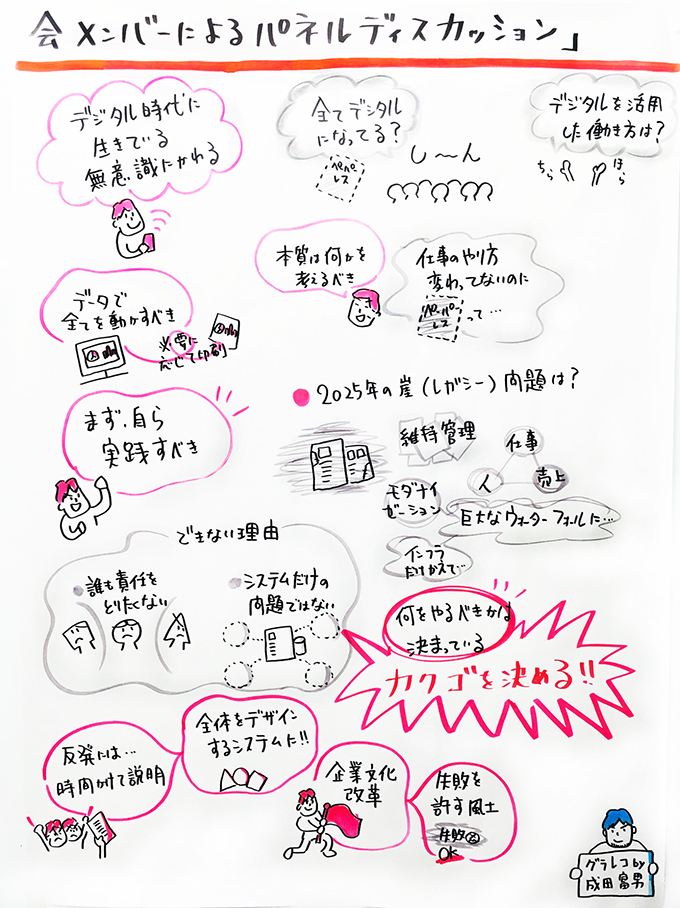 会メンバーによるパネルディスカッション」
デジタル時代に
生きている
無意識にかわる
全てデジタル
になってる?
ペーパー
レス
し〜ん
デジタルを活用
した働き方は?
ちら
ほら
本質は何かを
考えるべき
仕事のやり方
変わってないのに
ペーパー
レス
って…
データで
全てを動かすべき
※要に
応じて印刷
まず、自ら
実践すべき
2025年の崖(レガシー)問題は?
維持管理
仕事
人
売上
モダナイ
ゼーション
巨大なウォーターフォールに…
インフラ
だけかえて…
できない理由
誰も責任を
とりたくない
システムだけの
問題ではない
何をやるべきかは
決まっている
カクゴを決める!!
全体をデザイン
するシステムに!!
反発には…
時間かけて説明
企業文化
改革
失敗を
許す風土
失敗
OK
グラレコ by
成田富男